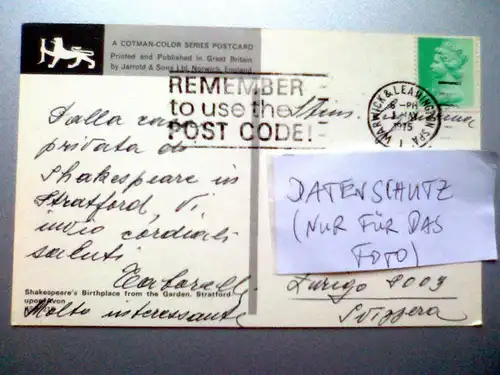 A COTMAN-COLOR SERIES POSTCARD
Printed and Published in Great Britain
by Jarrold & Sons Ltd, Norwich, England
REMEMBER
to use the
POST CODE!
WARWICK & LEAMINGTON SPA
6 - PM
1975
Dalla casa
privata di
Shakespeare in
Stratford, Vi
invio cordiali
saluti
Shakespeare's Birthplace from the Garden, Stratford
upon Avon
Molto interessante
DATENSCHUTZ
(NUR FÜR DAS
FOTO)
Zurigo 8003
Svizzera